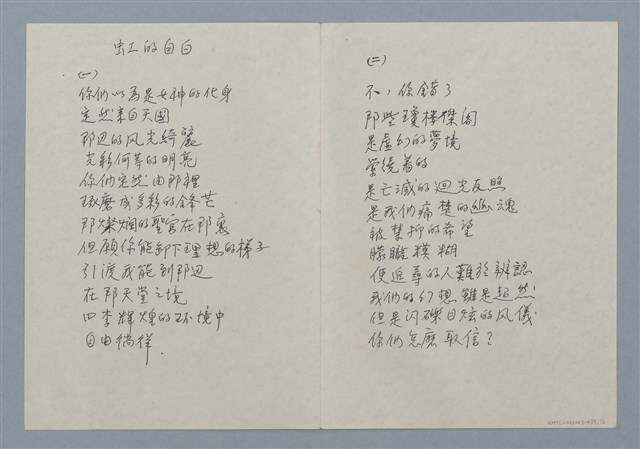 虹的自白
(一)
你們以為是女神的化身
定然来自天國
那边的风光綺麗
光彩何等的明亮
你们定然由那裡
琢磨成多彩的鋒芒
那燦烂的聖宫在那裏
但願你能卸下理想的梯子
引渡我能到那边
在那天堂之境
四季輝煌的环境中
自由徜徉.
(二)
不，你錯了
那些瓊樓傑阁
是虚幻的夢境
縈绕着的
是亡滅的迴光反照
是我们痛楚的幽魂
被禁抑的希望
朦朧糢糊
使追尋的人難於辨認
我们的幻想雖是超然
但是闪礫目炫的风儀
你们怎麽取信？